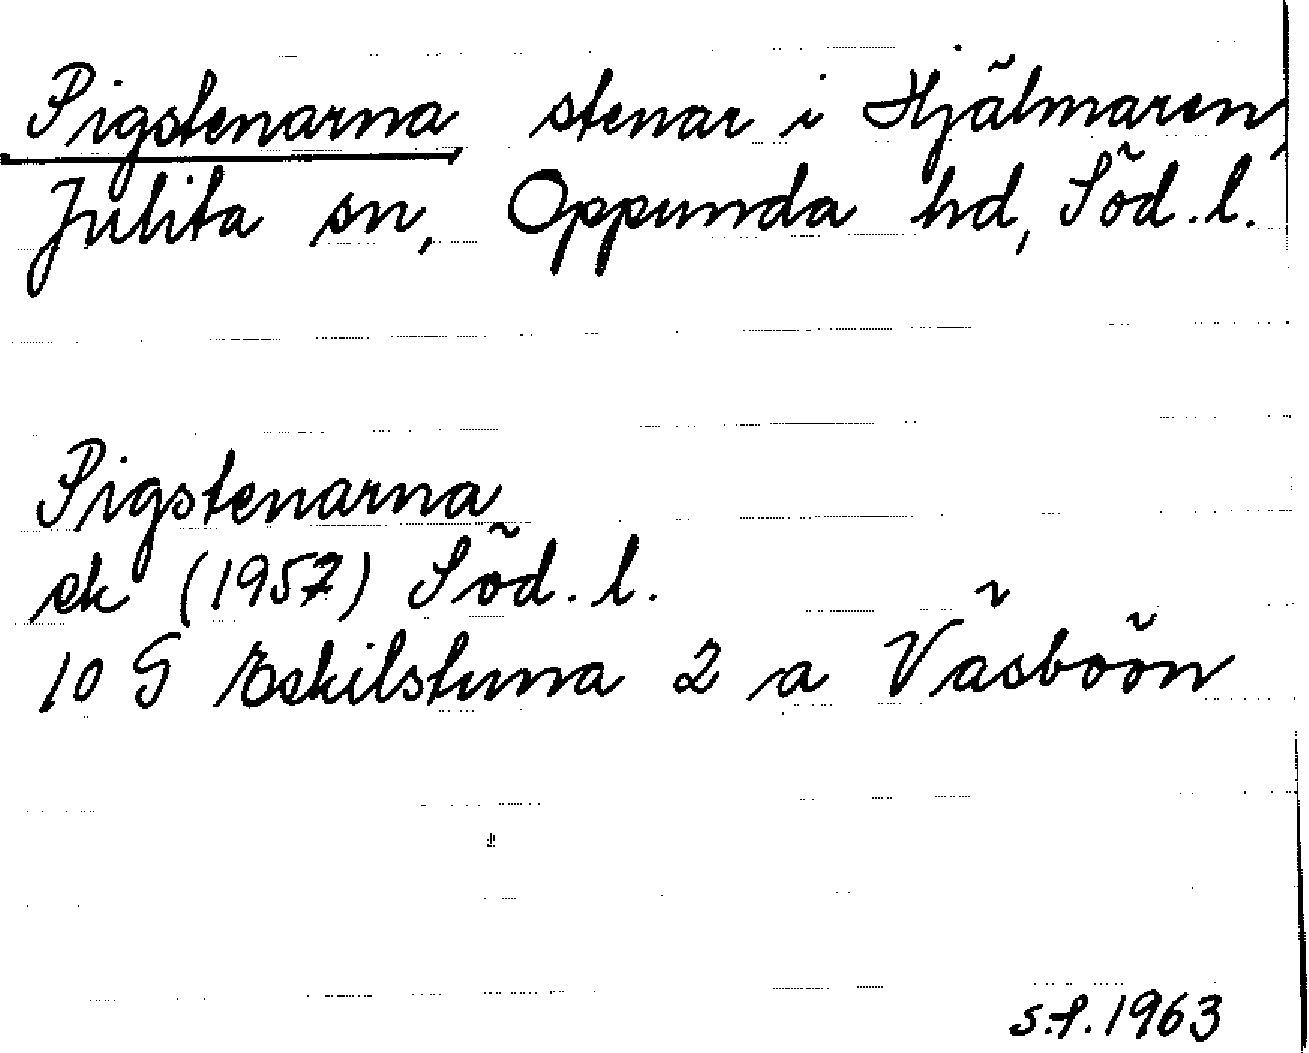 Pigstenarna stenar i Hjälmaren,
Julita sn, Oppunda hd, Söd. l.
Pigstenarna
ek (1957) Söd. l.
10 G Eskilstuna 2 a Väsboön
s.f. 1963